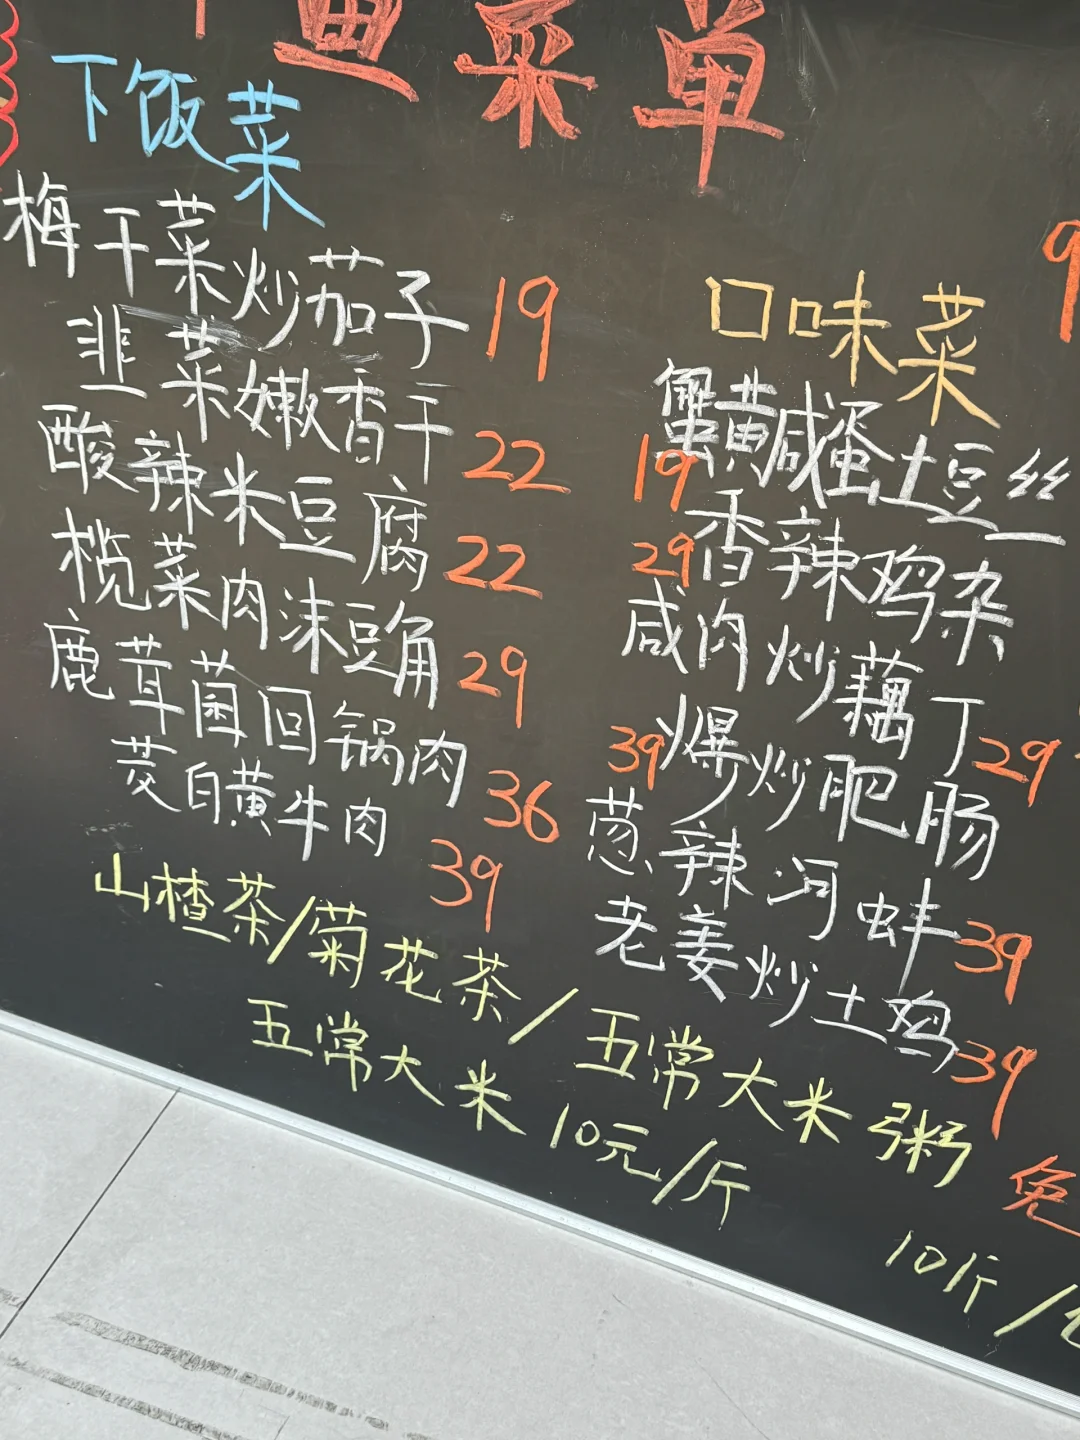 鱼菜单
下饭菜
梅干菜炒茄子 19
韭菜嫩香干 22
酸辣米豆腐 22
榄菜肉沫豆角 29
鹿茸菌回锅肉 36
茭白黄牛肉 39
9
口味菜
蟹黄咸蛋土豆丝 19
香辣鸡杂 29
咸肉炒藕丁 29
爆炒肥肠 39
葱辣河蚌 39
老姜炒土鸡 39
山楂茶/菊花茶/五常大米粥 免
五常大米 10元/斤
10斤/